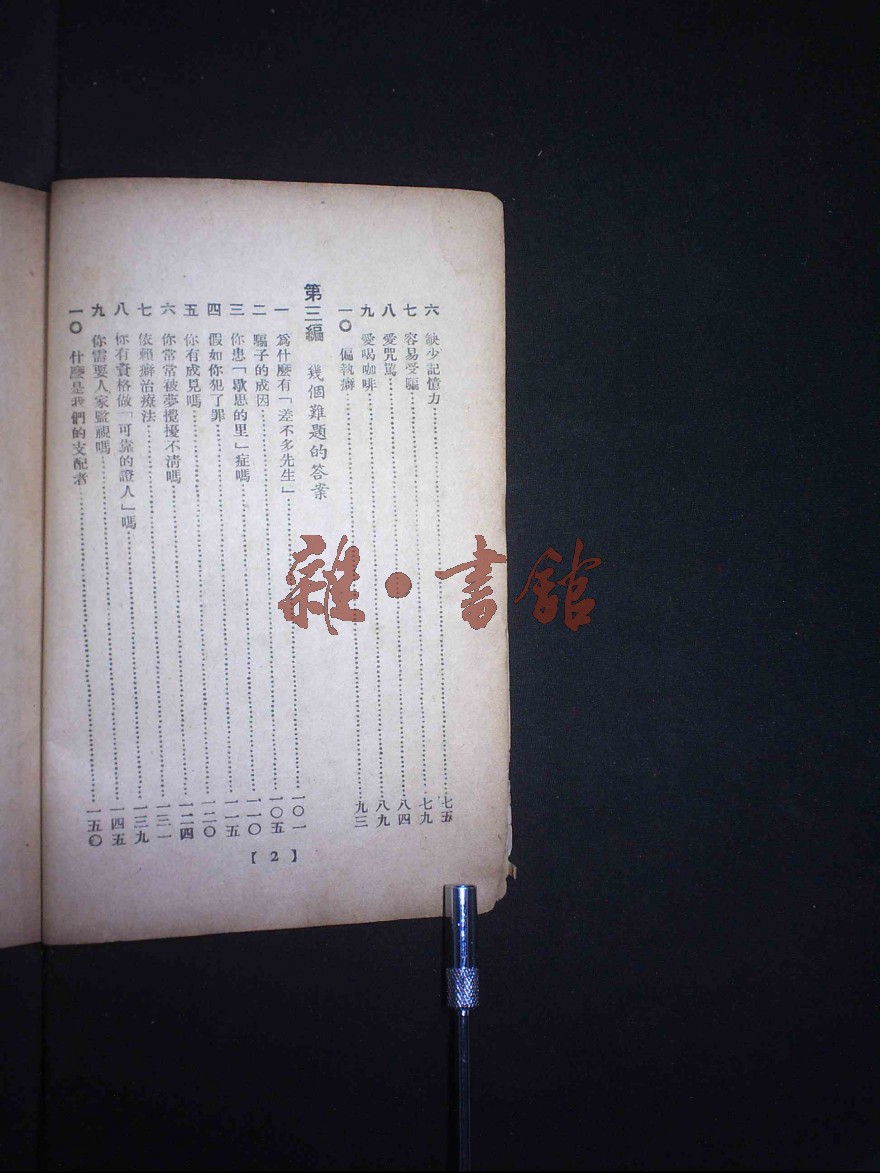 六 缺少記憶力 七五
七 容易受騙 七九
八 愛咒罵 八四
九 愛喝咖啡 八九
一〇 偏執癖 九三
第三編 幾個難題的答案
一 爲什麼有「差不多先生」 一〇一
二 騙子的成因 一〇五
三 你患「歇思的里」症嗎 一一〇
四 假如你犯了罪 一一五
五 你有成見嗎 一二〇
六 你常常被夢攪擾不清嗎 一二四
七 依賴癖治療法 一三一
八 你有資格做「可靠的證人」嗎 一三九
九 你需要人家監視嗎 一四五
一〇 什麼是我們的支配者 一五〇
【2】
雜·書館